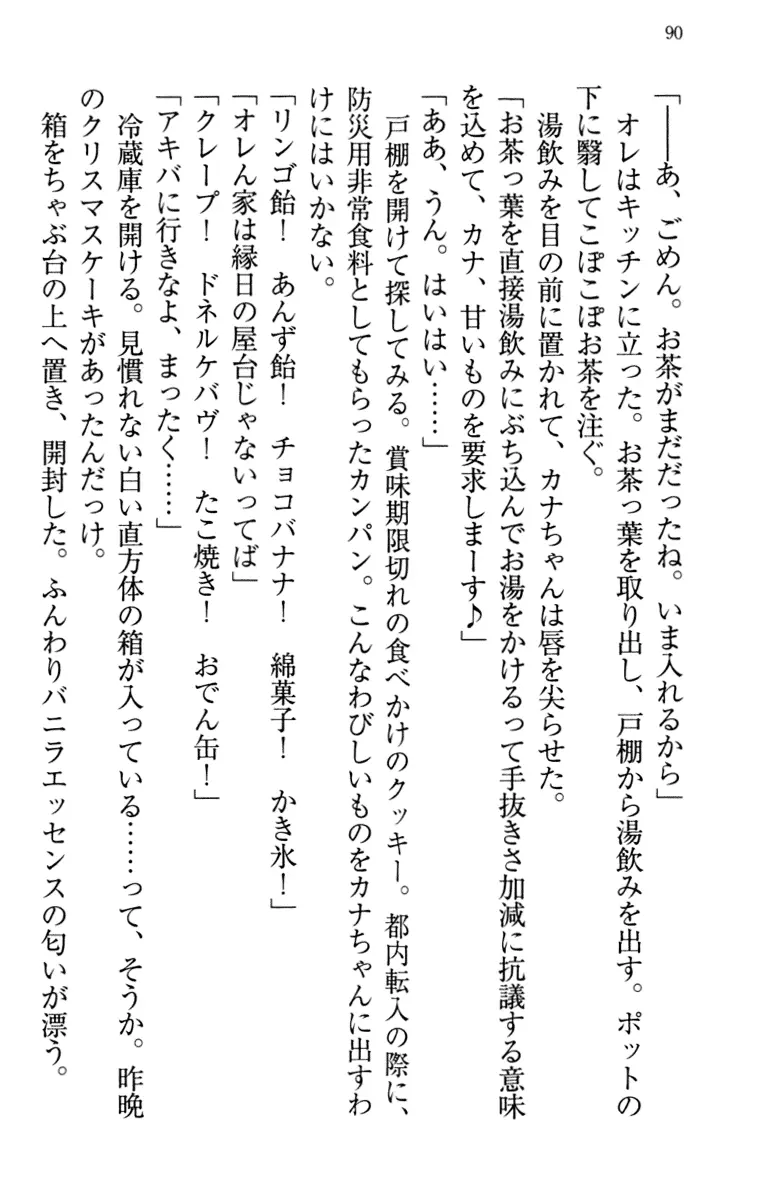 90
「――あ、ごめん。お茶がまだだったね。いま入れるから」
オレはキッチンに立った。お茶っ葉を取り出し、戸棚から湯飲みを出す。ポットの
下に翳してこぽこぽお茶を注ぐ。
湯飲みを目の前に置かれて、カナちゃんは唇を尖らせた。
「お茶っ葉を直接湯飲みにぶち込んでお湯をかけるって手抜きさ加減に抗議する意味
を込めて、カナ、甘いものを要求しまーす♪」
「ああ、うん。はいはい……」
戸棚を開けて探してみる。賞味期限切れの食べかけのクッキー。都内転入の際に、
防災用非常食料としてもらったカンパン。こんなわびしいものをカナちゃんに出すわ
けにはいかない。
「リンゴ飴！　あんず飴！　チョコバナナ！　綿菓子！　かき氷！」
「オレん家は縁日の屋台じゃないってば」
「クレープ！　ドネルケバヴ！　たこ焼き！　おでん缶！」
「アキバに行きなよ、まったく……」
冷蔵庫を開ける。見慣れない白い直方体の箱が入っている……って、そうか。昨晩
のクリスマスケーキがあったんだっけ。
箱をちゃぶ台の上へ置き、開封した。ふんわりバニラエッセンスの匂いが漂う。